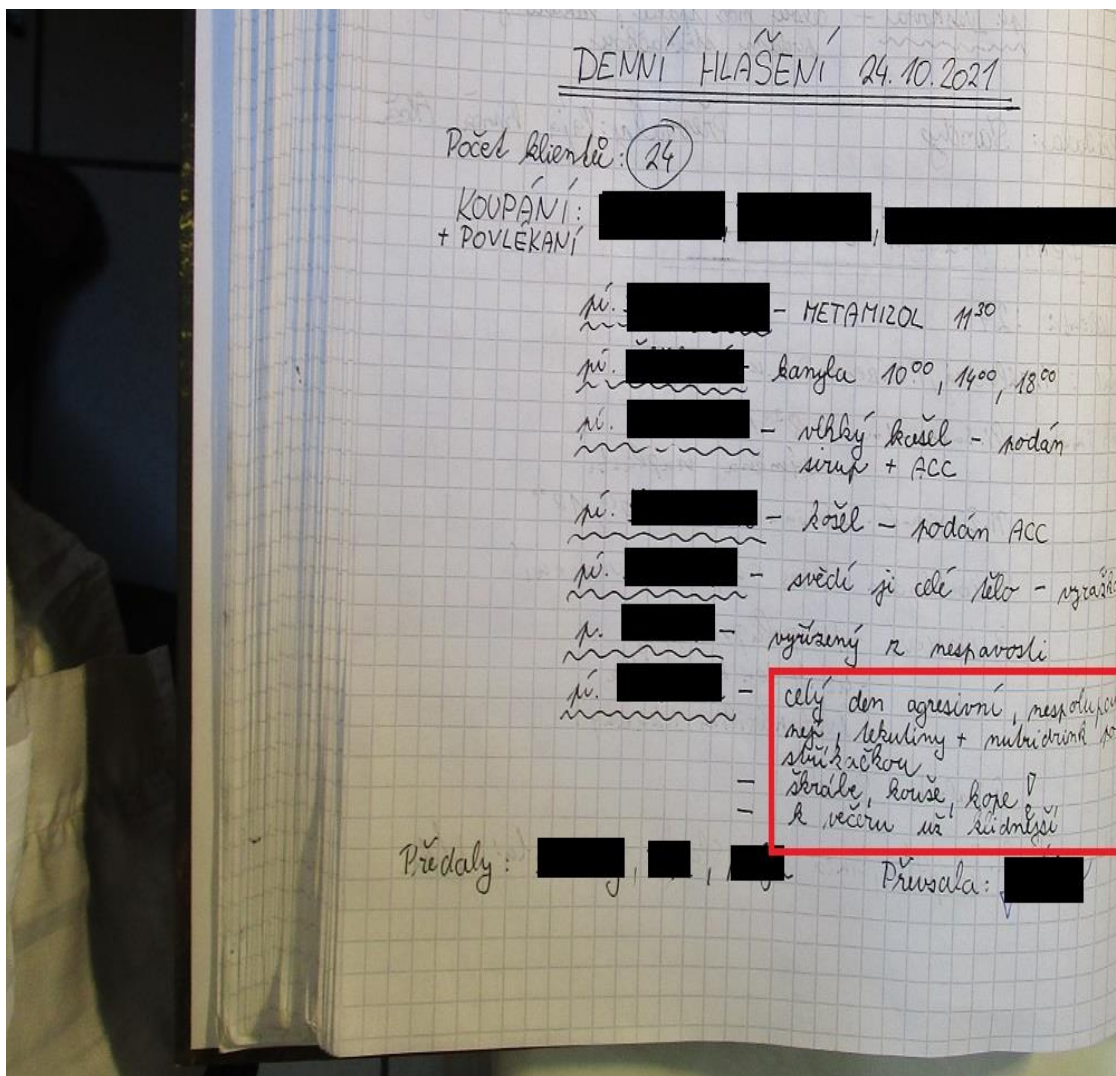 DENNÍ HLÁŠENÍ 24.10.2021
Počet klientů: 24
KOUPÁNÍ: , ,
+ POVLÉKANÍ
pí. - METAMIZOL 11³⁰
pí. - kanyla 10⁰⁰, 14⁰⁰, 18⁰⁰
pí. - vlhký kašel - podán
sirup + ACC
pí. - kašel - podán ACC
pí. - svědí ji celé tělo - vyrážk
p. - vyřízený z nespavosti
pí. - celý den agresivní, nespolupra
nejí, tekutiny + nutridrink po
stříkačkou
- škrábe, kouše, kope!
- k večeru už klidnější
Předaly: , ,
Převzala: